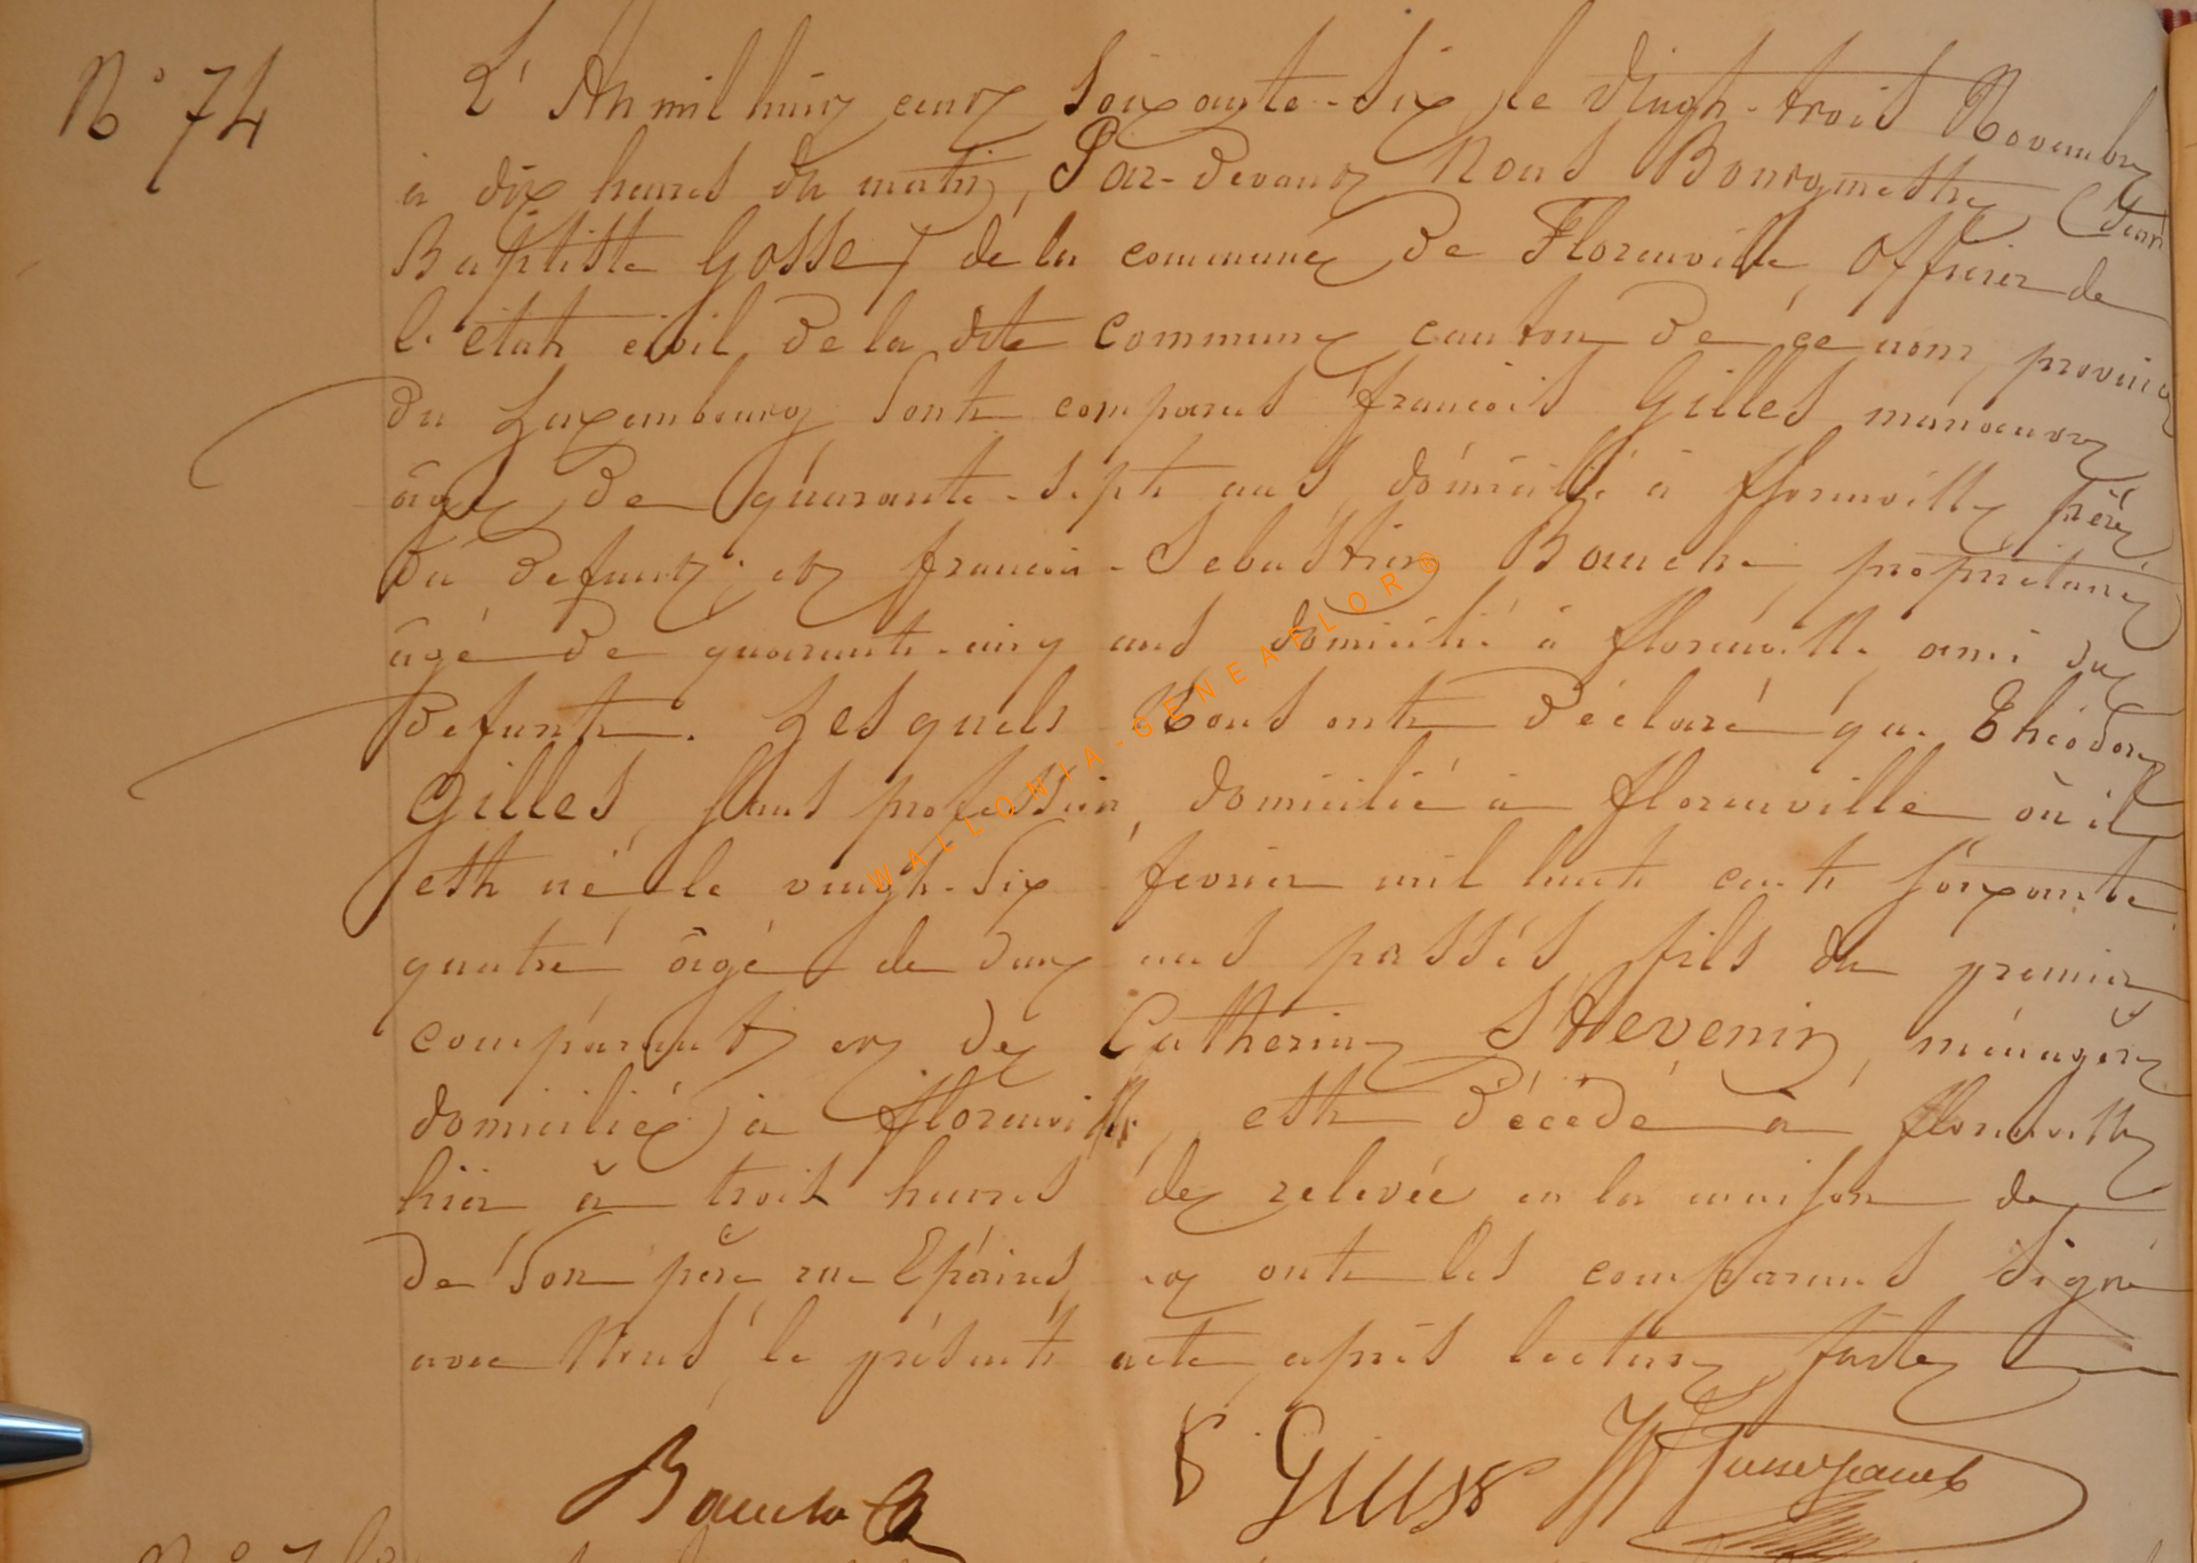 N° 74
L'An mil huit cent soixante-six, le vingt-trois Novembre
à dix heures du matin, Par-devant Nous Bourgmestre Jean
Baptiste Gosse de la commune de Florenville, Officier de
l'état civil de la dite Commune canton de ce nom, province
du Luxembourg sont comparus françois Gilles manoeuvre
âgé de quarante-sept ans, domicilié à florenville, père
du defunt; et françois-Sebastien Bauche, propriétaire
âgé de quarante-cinq ans domicilié à florenville ami du
defunt. Lesquels Nous ont déclaré que Théodore
Gilles, sans profession, domicilié à florenville où il
est né le vingt-six fevrier mil huit cent soixante
quatre âgé de deux ans passés, fils du premier
comparant et de Catherine Sthevenin, ménagère
domiciliée à florenville, est décédé à florenville
hier à trois heures de relevée en la maison de
de son père rue Epérires et ont les comparans signé
avec Nous le présent acte après lecture faite
Bauche
F Gilles
WALLONIA-GENEAFLOR®